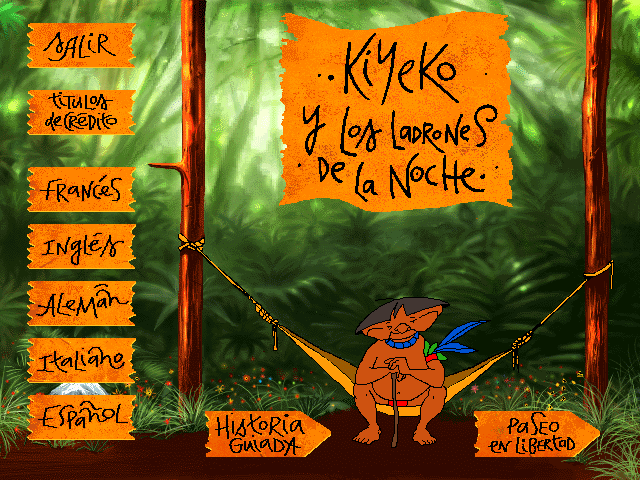 SALIR
TITULOS
de CRÉDITO
FRANCÉS
INGLÉS
ALEMÁN
ITALIANO
ESPAÑOL
KIYEKO
Y LOS LADRONES
DE LA NOCHE
HISTORIA
GUIADA
PASEO
EN LIBERTAD